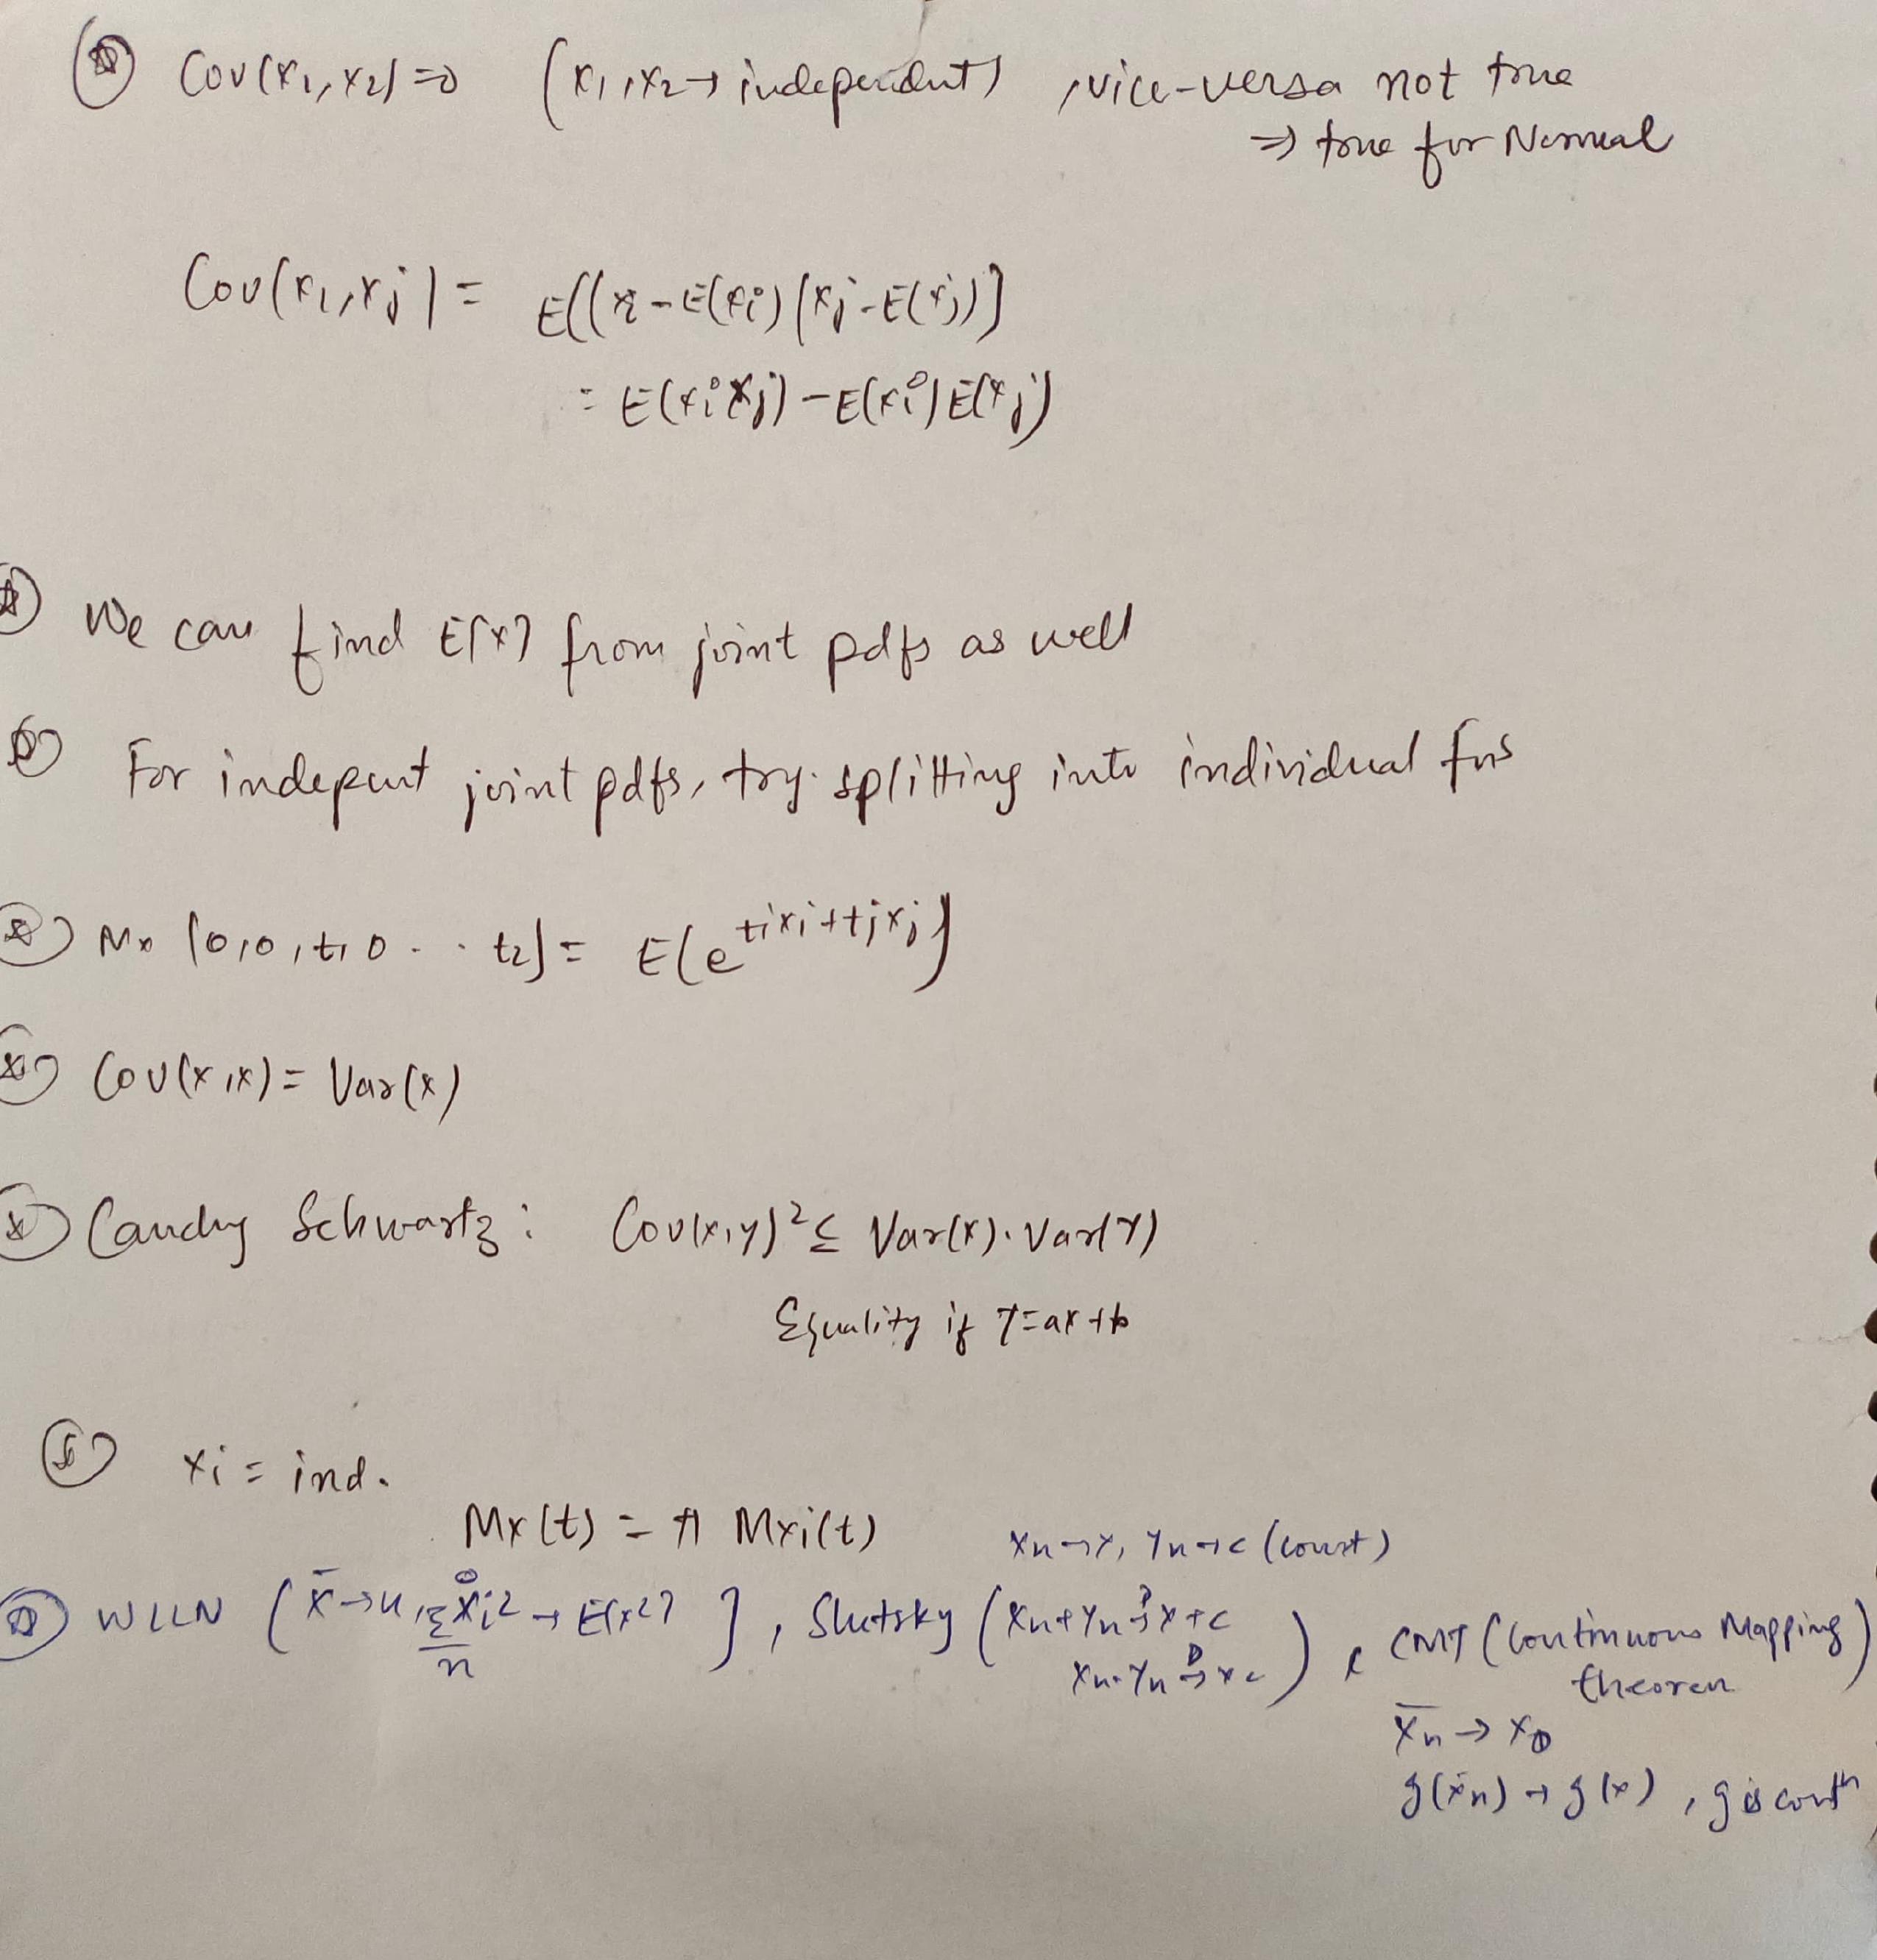 Cov(x1, x2) = 0 (x1, x2 → independent) , vice-versa not true
⇒ true for Normal
Cov(xi, xj) = E[(xi - E(xi) (xj - E(xj))]
= E(xi xj) - E(xi) E(xj)
We can find E[x] from joint pdfs as well
For indepent joint pdfs, try splitting into individual fns
Mx (0,0,t,0 .. t2) = E(e^{tixi + tjxj})
Cov(x,x) = Var(x)
Cauchy Schwartz : Cov(x,y)² ≤ Var(x). Var(Y)
Equality if Y = ax + b
xi = ind.
Mx(t) = π Mxi(t)
Xn → X, Yn → c (const)
WLLN ( X̄ → u, Σxi²/n → E[x²] ], Slutsky (Xn + Yn →D X + c
Xn. Yn →D xc ) , CMT (Continuous Mapping)
theorem
X̄n → x
g(x̄n) → g(x) , g is contn